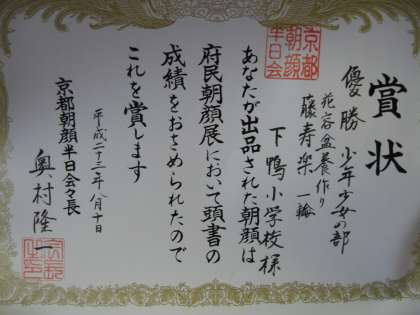 賞状
優勝 少年少女の部
花容盆養作り
藤寿楽 一輪
下鴨小学校様
あなたが出品された朝顔は
府民朝顔展において頭書の
成績をおさめられたので
これを賞します
平成二十三年八月十日
京都朝顔半日会々長
奥村隆一
京都
朝顔
半日会